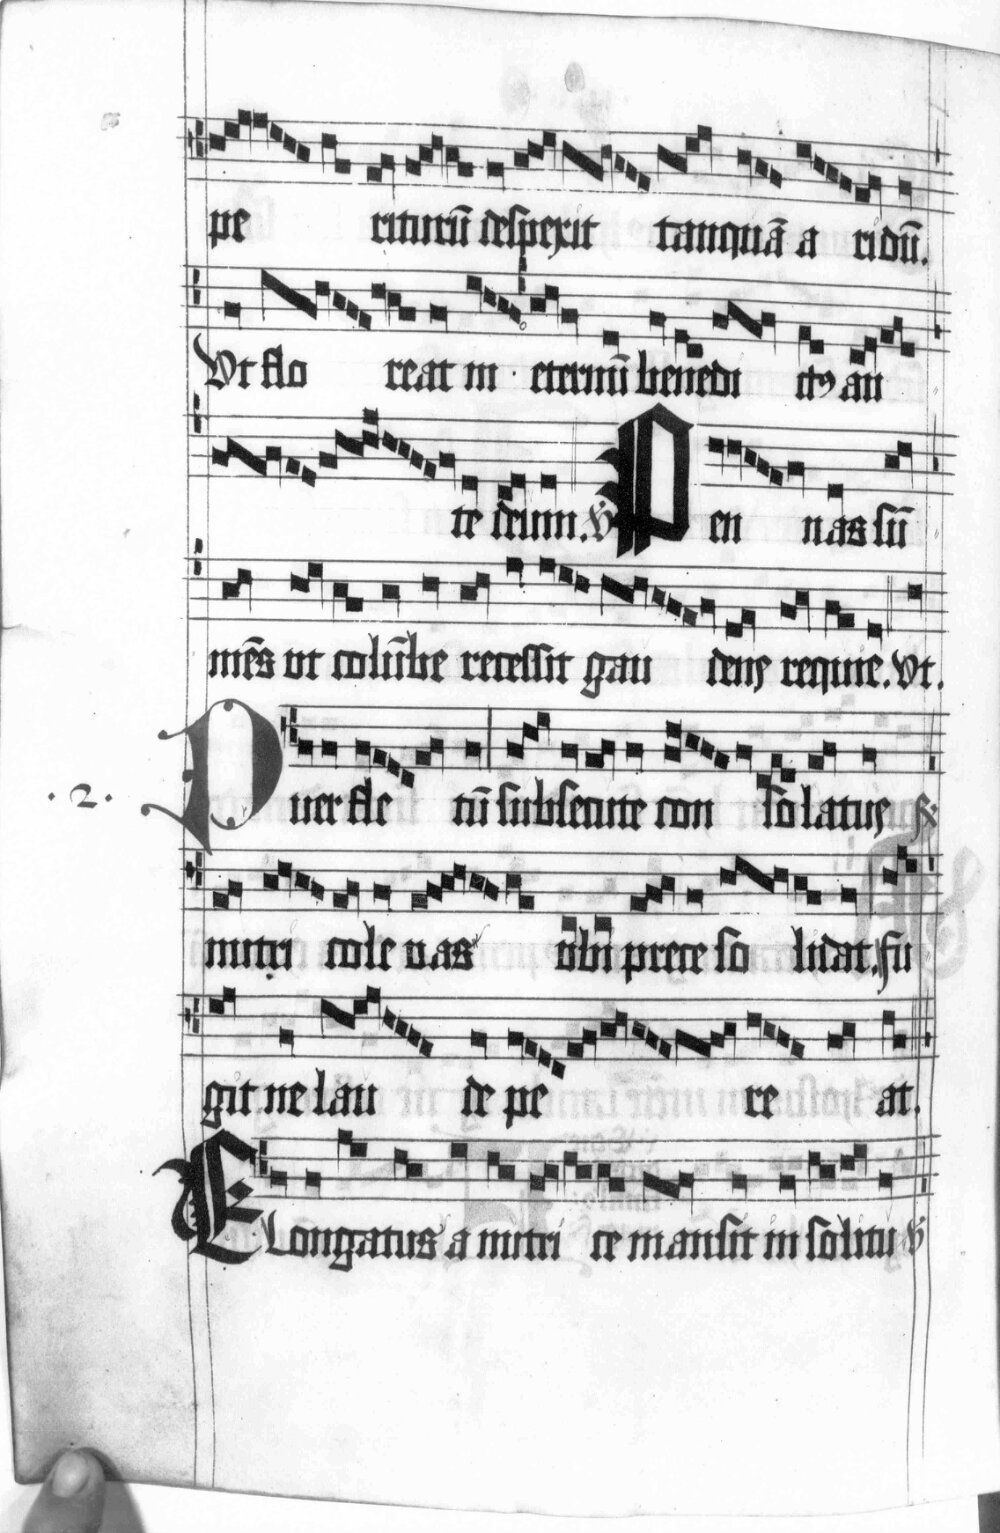 pe riturū despexit tanquā a ridū.
Vt flo reat in eternū benedi ctꝰ an
te deum. ℣ Pen nas sū
mēs vt colūbe recessit gau dens requie. Vt.
.2. Puer fle tū subsecute con solatus ℟
nutri cole uas vbi prece so lidat. fu
git ne lau de pe re at.
Elongatus a nutri ce mansit in solitu ℣